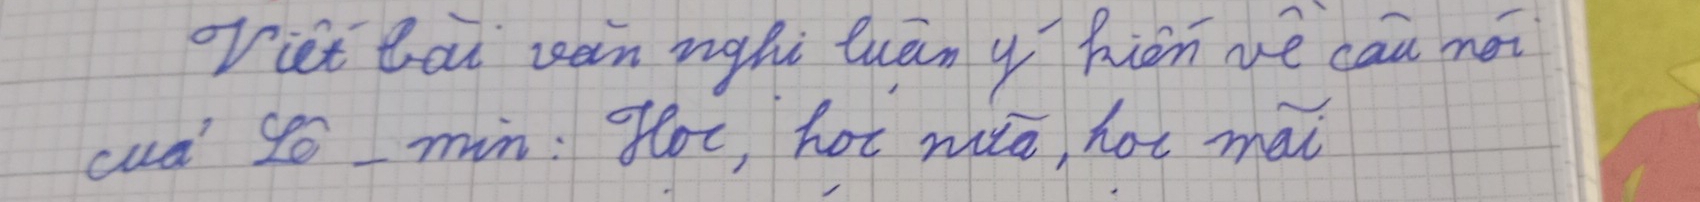 Viết bài văn nghị luận ý kiến về câu nói
của Lô_min: Học, học nữa, học mãi